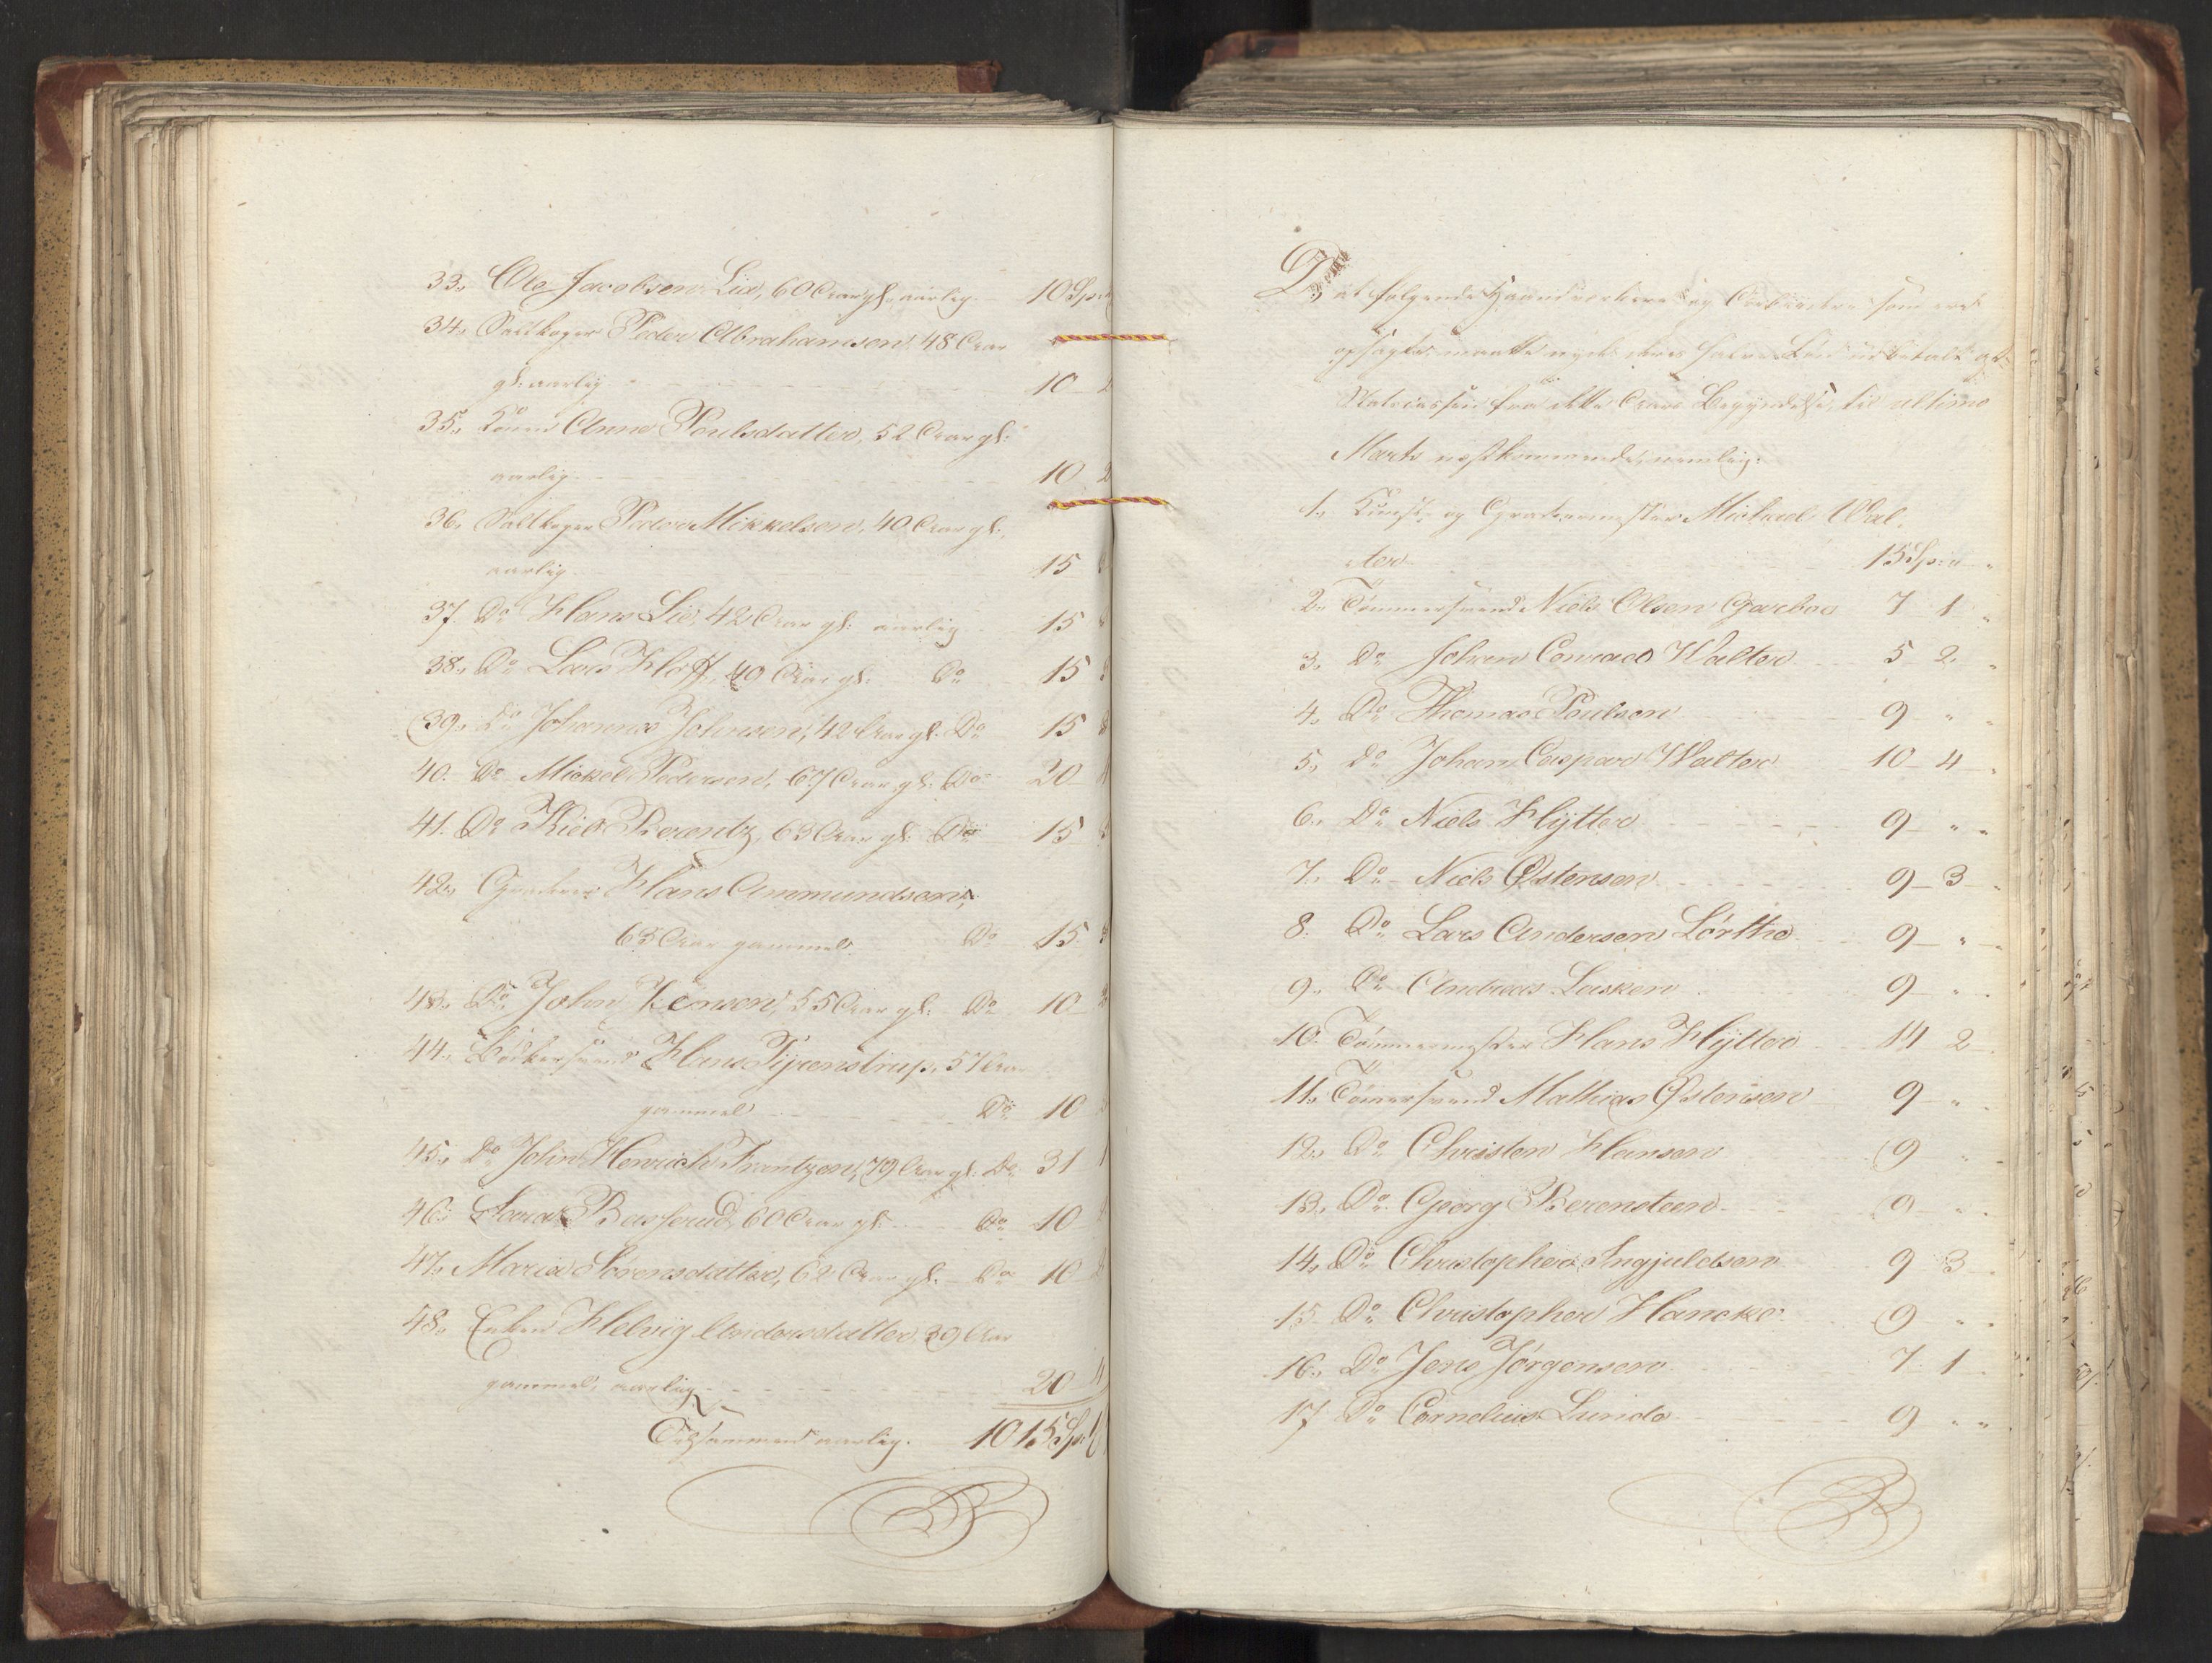 33., Ole Jacobsen Lie, 60 Aar gl. aarlig. 10 Sp:
34., Saltkoger Peder Abrahamsen, 48 Aar
gl: aarlig. 10
35., Anne Poulsdatter, 52 Aar gl:
aarlig. 10
36., Saltkoger Peder Mikkelsen, 40 Aar gl:
aarlig. 15
37. Do Hans Lie, 42 Aar gl: aarlig 15
38., Do Lars Hoff, 40 Aar gl. Do 15
39., Do Johannes Johnsen, 42 Aar gl: Do 15
40. Do Mickel Pedersen, 67 Aar gl: Do 20
41. Do Niels Berentz, 63 Aar gl: Do 15
42., Graderer Hans Ammundsen,
63 Aar gammel. Do 15
43., Do John Jensen, 55 Aar gl: Do 10
44., Bödkersvend Hans Tyrenstrup, 57 Aar
gammel Do 10
45., Do John Henrich Frantzen, 79 Aar gl: Do 31
46., 60 Aar gl: Do 10
47., Maria Sørensdatter, 62 Aar gl. Do 10
48., Enken Helvig Andersdatter, 39 Aar
gammel, aarlig 20
Tilsammen aarlig. 1015 Sp:
D, at følgende Haandværkere og Arbeidere som ere
opsagte, maatte nyde deres halve Løn udbetalt af
fra dette Aars Begyndelse, til ultimo
Marts næstkommende, nemlig:
1., Kunst- og Gradeermester Michael Wal-
ter 15 Sp: " "
2., Tömmersvend Niels Olsen Gaarbo 7 1 "
3., Do Johan Conrad Walter 5 2 "
4., Do Thomas Poulsen 9 " "
5., Do Johan Caspar Walter 10 4 "
6., Do Niels Hytter 9 " "
7., Do Niels Østensen 9 3 "
8. Do Lars Andersen Lörthe 9 " "
9., Do Andreas Lasken 9 " "
10. Tömmermester Hans Hytter 14 2
11., Tömersvend Mathias Østensen 9 " "
12., Do Christen Hansen 9 " "
13., Do Georg Berensteen 9 " "
14., Do Christopher Ingjuldsen 9 3 "
15. Do Christopher Hancke 9 " "
16., Do Jens Jørgensen 7 1
17. Do Cornelius Lunde 9 " "